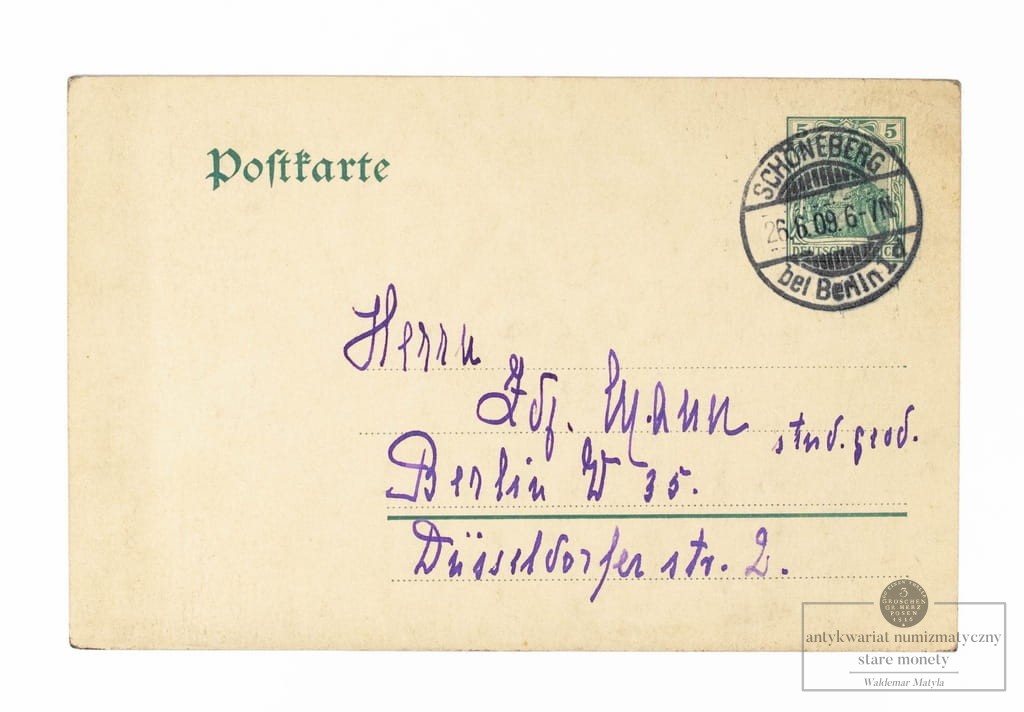 Postkarte
5 5
DEUTSCHES REICH
SCHÖNEBERG
26.6.09.6-7N.
bei Berlin 1 d
Herrn
stud. geod.
Berlin W 35.
Düsseldorfer str. 2.
3
GROSCHEN
GR. HERZ
POSEN
antykwariat numizmatyczny
stare monety
Waldemar Matyla